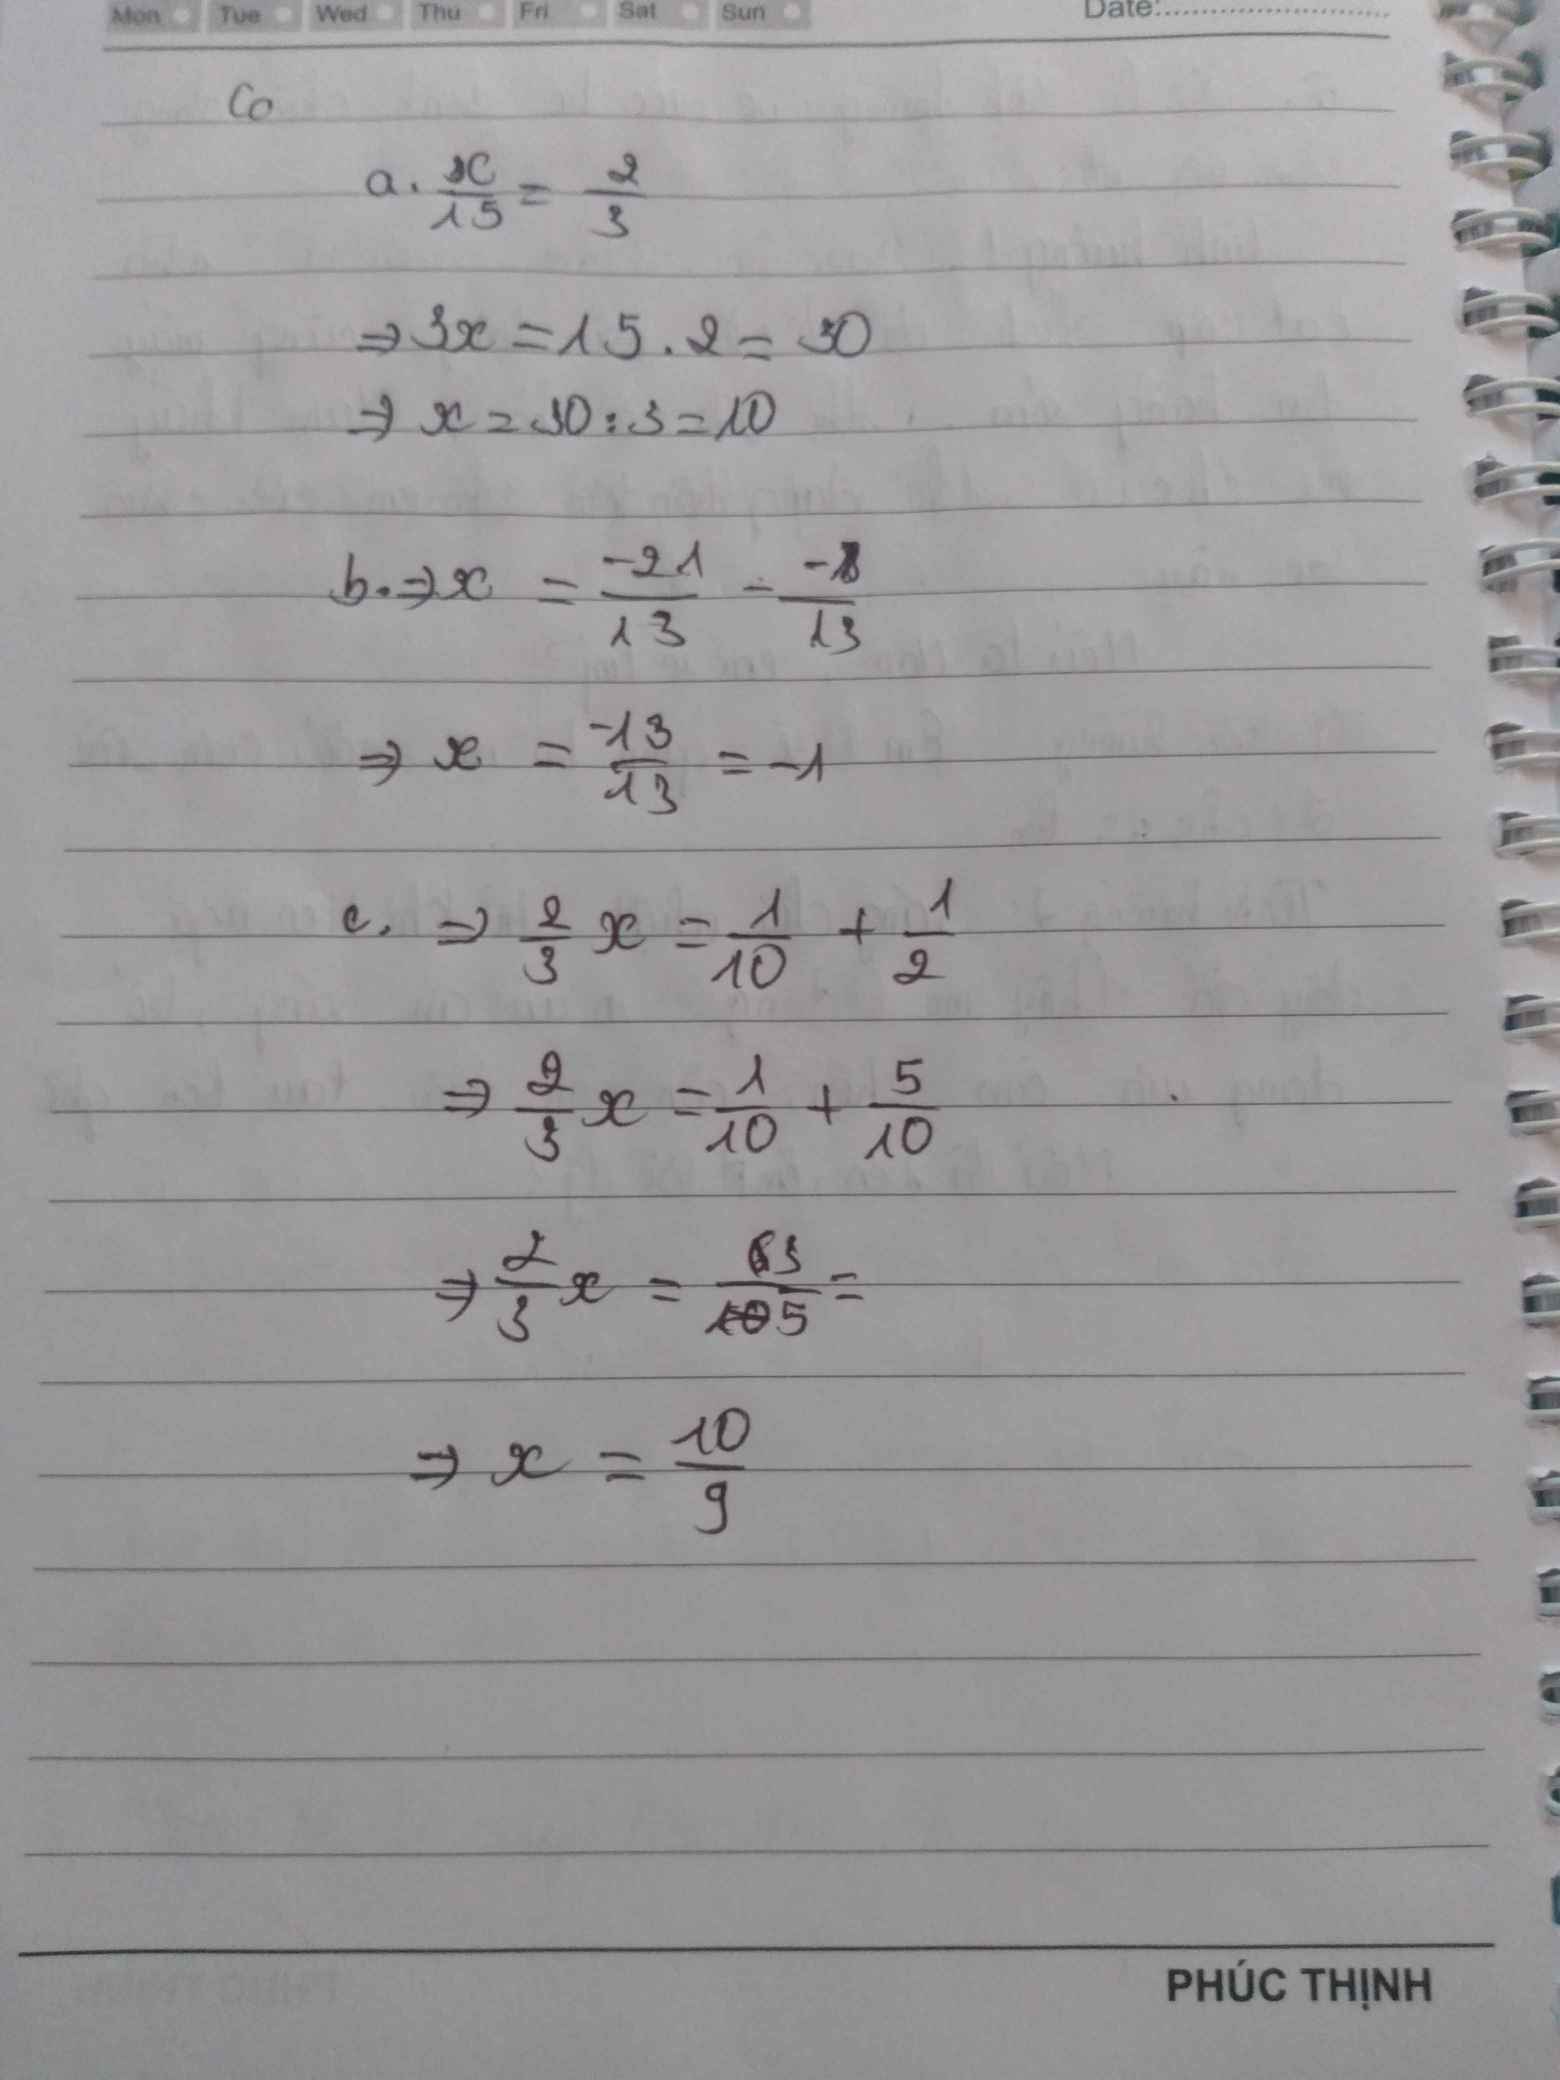 Mon Tue Wed Thu Fri Sat Sun Date:
Co
a. x/15 = 2/3
⇒ 3x = 15 . 2 = 30
⇒ x = 30 : 3 = 10
b. ⇒ x = -21/13 - -8/13
⇒ x = -13/13 = -1
c. ⇒ 2/3 x = 1/10 + 1/2
⇒ 2/3 x = 1/10 + 5/10
⇒ 2/3 x = 3/5 =
⇒ x = 10/9
PHÚC THỊNH